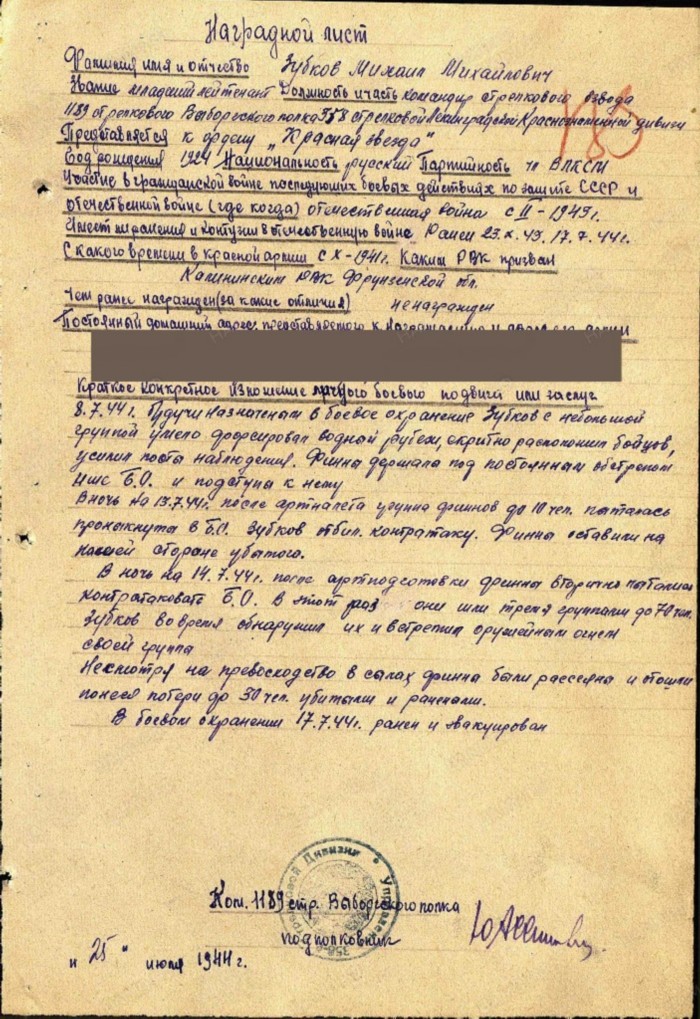 Наградной лист
Фамилия имя и отчество Зубков Михаил Михайлович
Звание младший лейтенант Должность и часть командир стрелкового взвода
1189 стрелкового Выборгского полка 358 стрелковой Ленинградской Краснознаменной дивизии
Представляется к ордену „Красная звезда"
Год рождения 1924 Национальность русский Партийность чл ВЛКСМ
Участие в гражданской войне последующих боевых действиях по защите СССР и
отечественной войне (где когда) отечественная война с II-1943г.
Имеет ли ранения и контузии в отечественную войне Ранен 23.X.43. 17.7.44г.
С какого времени в красной армии с X-1941г. Каким РВК призван
Калининским РВК Фрунзенской обл.
Чем ранее награжден (за какие отличия) ненагражден
Постоянный домашний адрес представляемого к награждению и
Краткое конкретное изложение личного боевого подвига или заслуг
8.7.44г. Будучи назначеным в боевое охранение Зубков с небольшой
группой умело форсировал водный рубеж, скрытно расположил бойцов,
усилил посты наблюдения. Финны держала под постоянным обстрелом
Б.О. и подступы к нему
В ночь на 13.7.44г. после артналета группа финнов до 10 чел. пыталась
проникнуть в Б.О. Зубков отбил контратаку. Финны оставили на
нашей стороне убытого.
В ночь на 14.7.44г. после артподготовки финны вторично пытались
контратаковать Б.О. В этот раз они шли тремя группами до 70 чел.
Зубков во время обнаружил их и встретил оружейным огнем
своей группа
Несмотря на превосходство в сылах финна были рассеяны и отошли
понеся потери до 30 чел. убитыми и ранеными.
В боевом охранении 17.7.44г. ранен и эвакуирован
Ком. 1189 стр. Выборгского полка
подполковник
„25" июля 1944г.